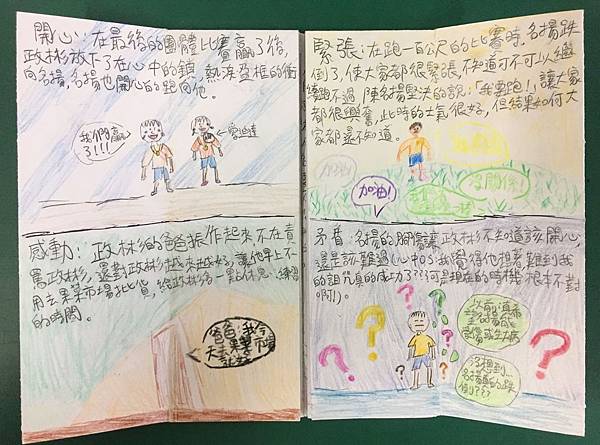 開心:在最後的團體比賽贏了後,
政彬放下了在心中的鎖,熱淚盈框的衝
向名揚,名揚也開心的跑向他。
我們贏
了!!!
感動:政林彬的爸爸振作起來,不在責
罵政林彬,還對政林彬越來越好,讓他早上不
用去果菜市場批貨,給政林彬有一點的休息、練習
的時間。
爸爸:我今
天去果菜市場
緊張:在跑一百公尺的比賽時,名揚跌
倒了,使大家都很緊張,不知道可不可以繼
續跑不過,陳名揚堅決的說:「我要跑!」讓大家
都很興奮,此時的士氣很好,但結果如何大
家都還不知道。
加油!
加油!
沒關係!
矛盾:名揚的腳傷讓政林彬不知道該開心,
還是該難過(心中OS:我覺得他想著難到我
的詛咒真的成功了???可是現在的時機根本不對
啊!)。
沒想到
名揚真的跌
倒???